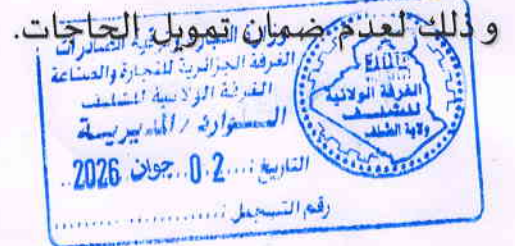 و ذلك لعدم ضمان تمويل الحاجات.
الصادرات
الغرفة الجزائرية للتجارة والصناعة
الغرفة الولائية للشلف
/ المديرية
التاريخ : 0.2 جوان 2026
رقم التسجيل :
الغرفة الولائية
للشلف
ولاية الشلف